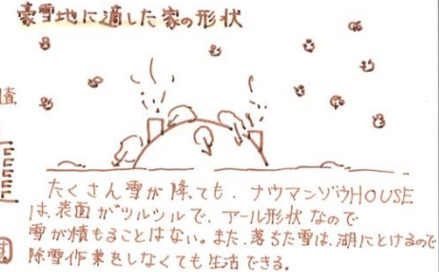 豪雪地に適した家の形状
たくさん雪が降ても、ナウマンゾウHOUSE
は、表面がツルツルで、アール形状なので
雪が積もることはない。また、落ちた雪は、湖にとけるので
除雪作業をしなくても生活できる。